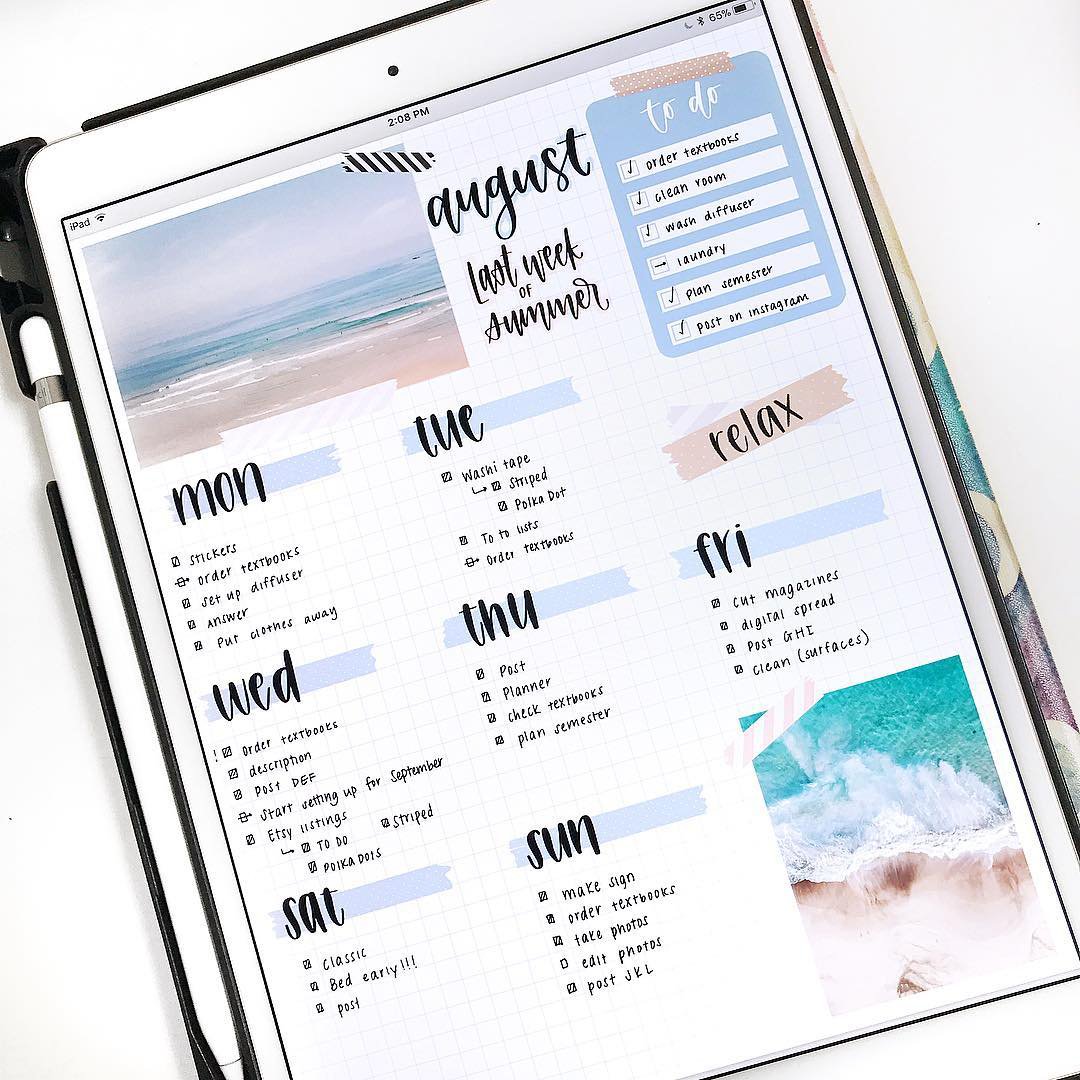 65%
2:08 PM
iPad
august
Last week
of
summer
to do
order textbooks
clean room
wash diffuser
laundry
plan semester
post on instagram
relax
mon
stickers
order textbooks
set up diffuser
Answer
Put clothes away
tue
Washi tape
Striped
Polka Dot
To to lists
Order textbooks
wed
! Order textbooks
description
Post DEF
Start setting up for September
Etsy listings
To Do Striped
Polka Dots
thu
Post
Planner
check textbooks
plan semester
fri
cut magazines
digital spread
Post GHI
clean (surfaces)
sat
Classic
Bed early!!!
post
sun
make sign
order textbooks
take photos
edit photos
post JKL